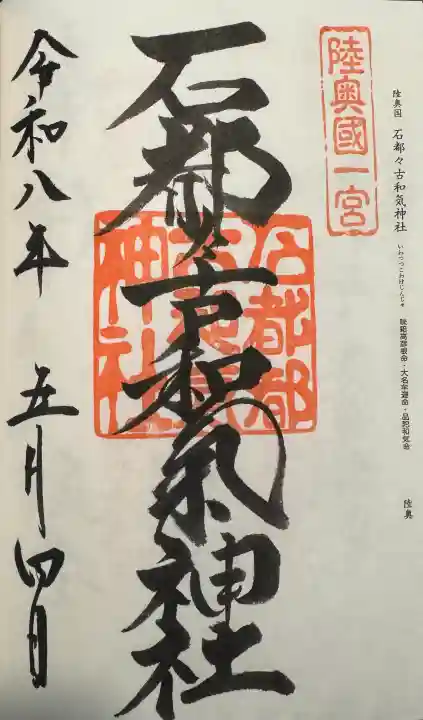 陸奥國一宮
陸奥国 石都々古和気神社 いわつつこわけじんじゃ 味耜高彦根命・大名牟遅命・品陀和気命 陸奥
石都々古和氣神社
石都都
古和氣
神社
令和八年 五月四日